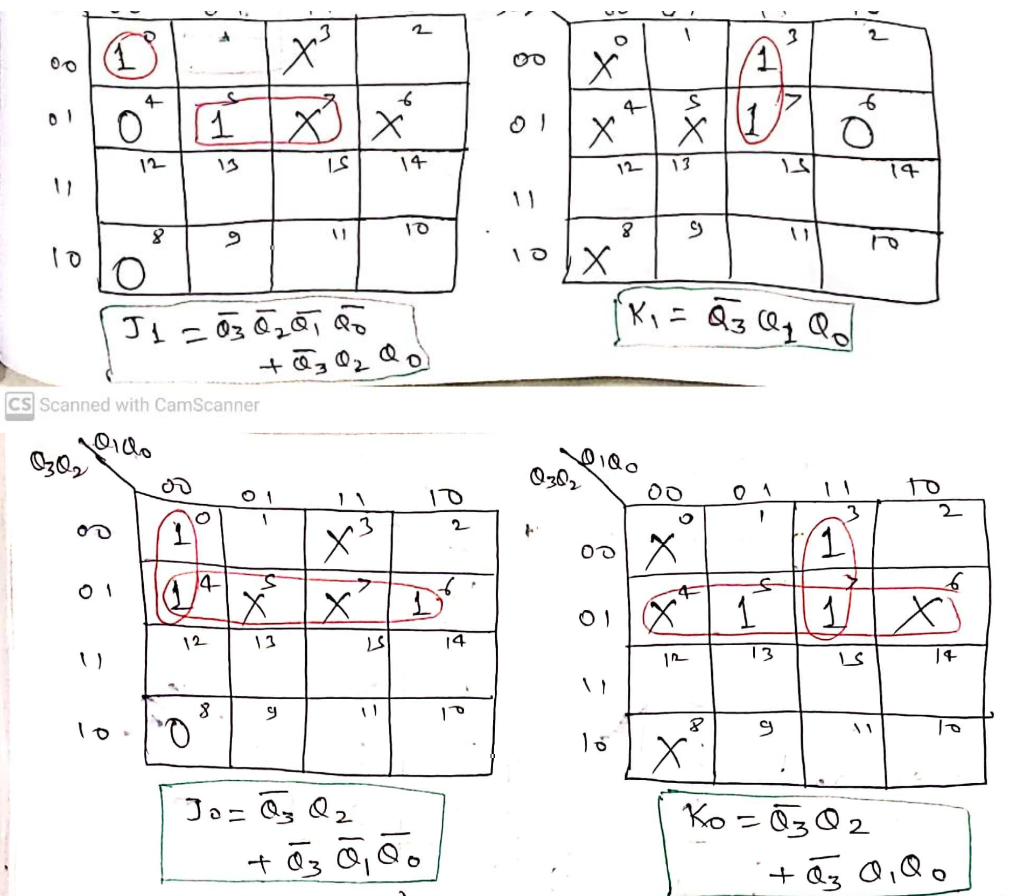 00 1 0 1 X 3 2
01 0 4 1 5 X 7 X 6
11 12 13 15 14
10 0 8 9 11 10
J1 = Q̅3 Q̅2 Q̅1 Q̅0
+ Q̅3 Q2 Q0
00 X 0 1 1 3 2
01 X 4 X 5 1 7 0 6
11 12 13 15 14
10 X 8 9 11 10
K1 = Q̅3 Q1 Q0
CS Scanned with CamScanner
Q3Q2 Q1Q0
00 01 11 10
00 1 0 1 X 3 2
01 1 4 X 5 X 7 1 6
11 12 13 15 14
10 0 8 9 11 10
J0 = Q̅3 Q2
+ Q̅3 Q̅1 Q̅0
Q3Q2 Q1Q0
00 01 11 10
00 X 0 1 1 3 2
01 X 4 1 5 1 7 X 6
11 12 13 15 14
10 X 8 9 11 10
K0 = Q̅3 Q2
+ Q̅3 Q1Q0